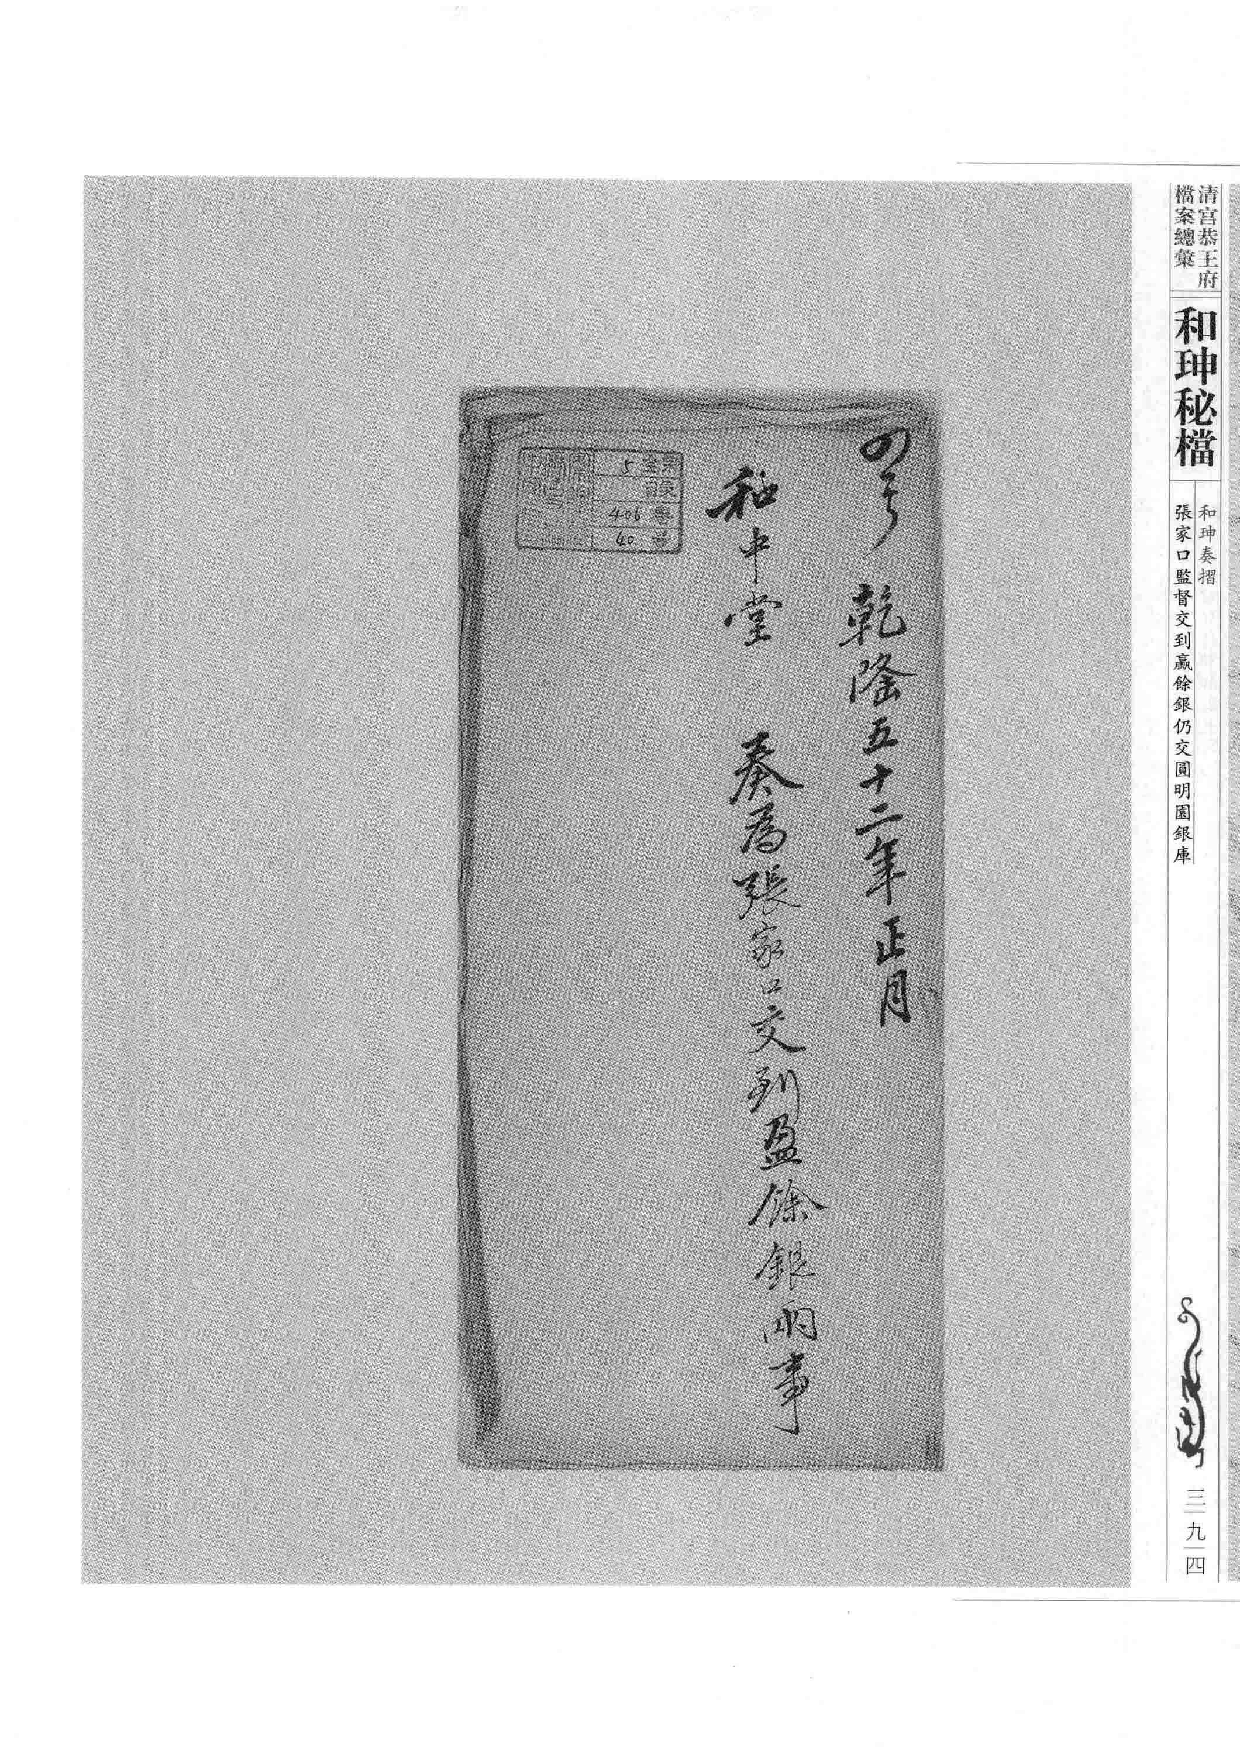 清宮恭王府
檔案總彙
和珅秘檔
和珅奏摺
張家口監督交到贏餘銀仍交圓明園銀庫
三九四
乾隆五十二年正月
和中堂 奏為張家口交到盈餘銀兩事
5
406
40